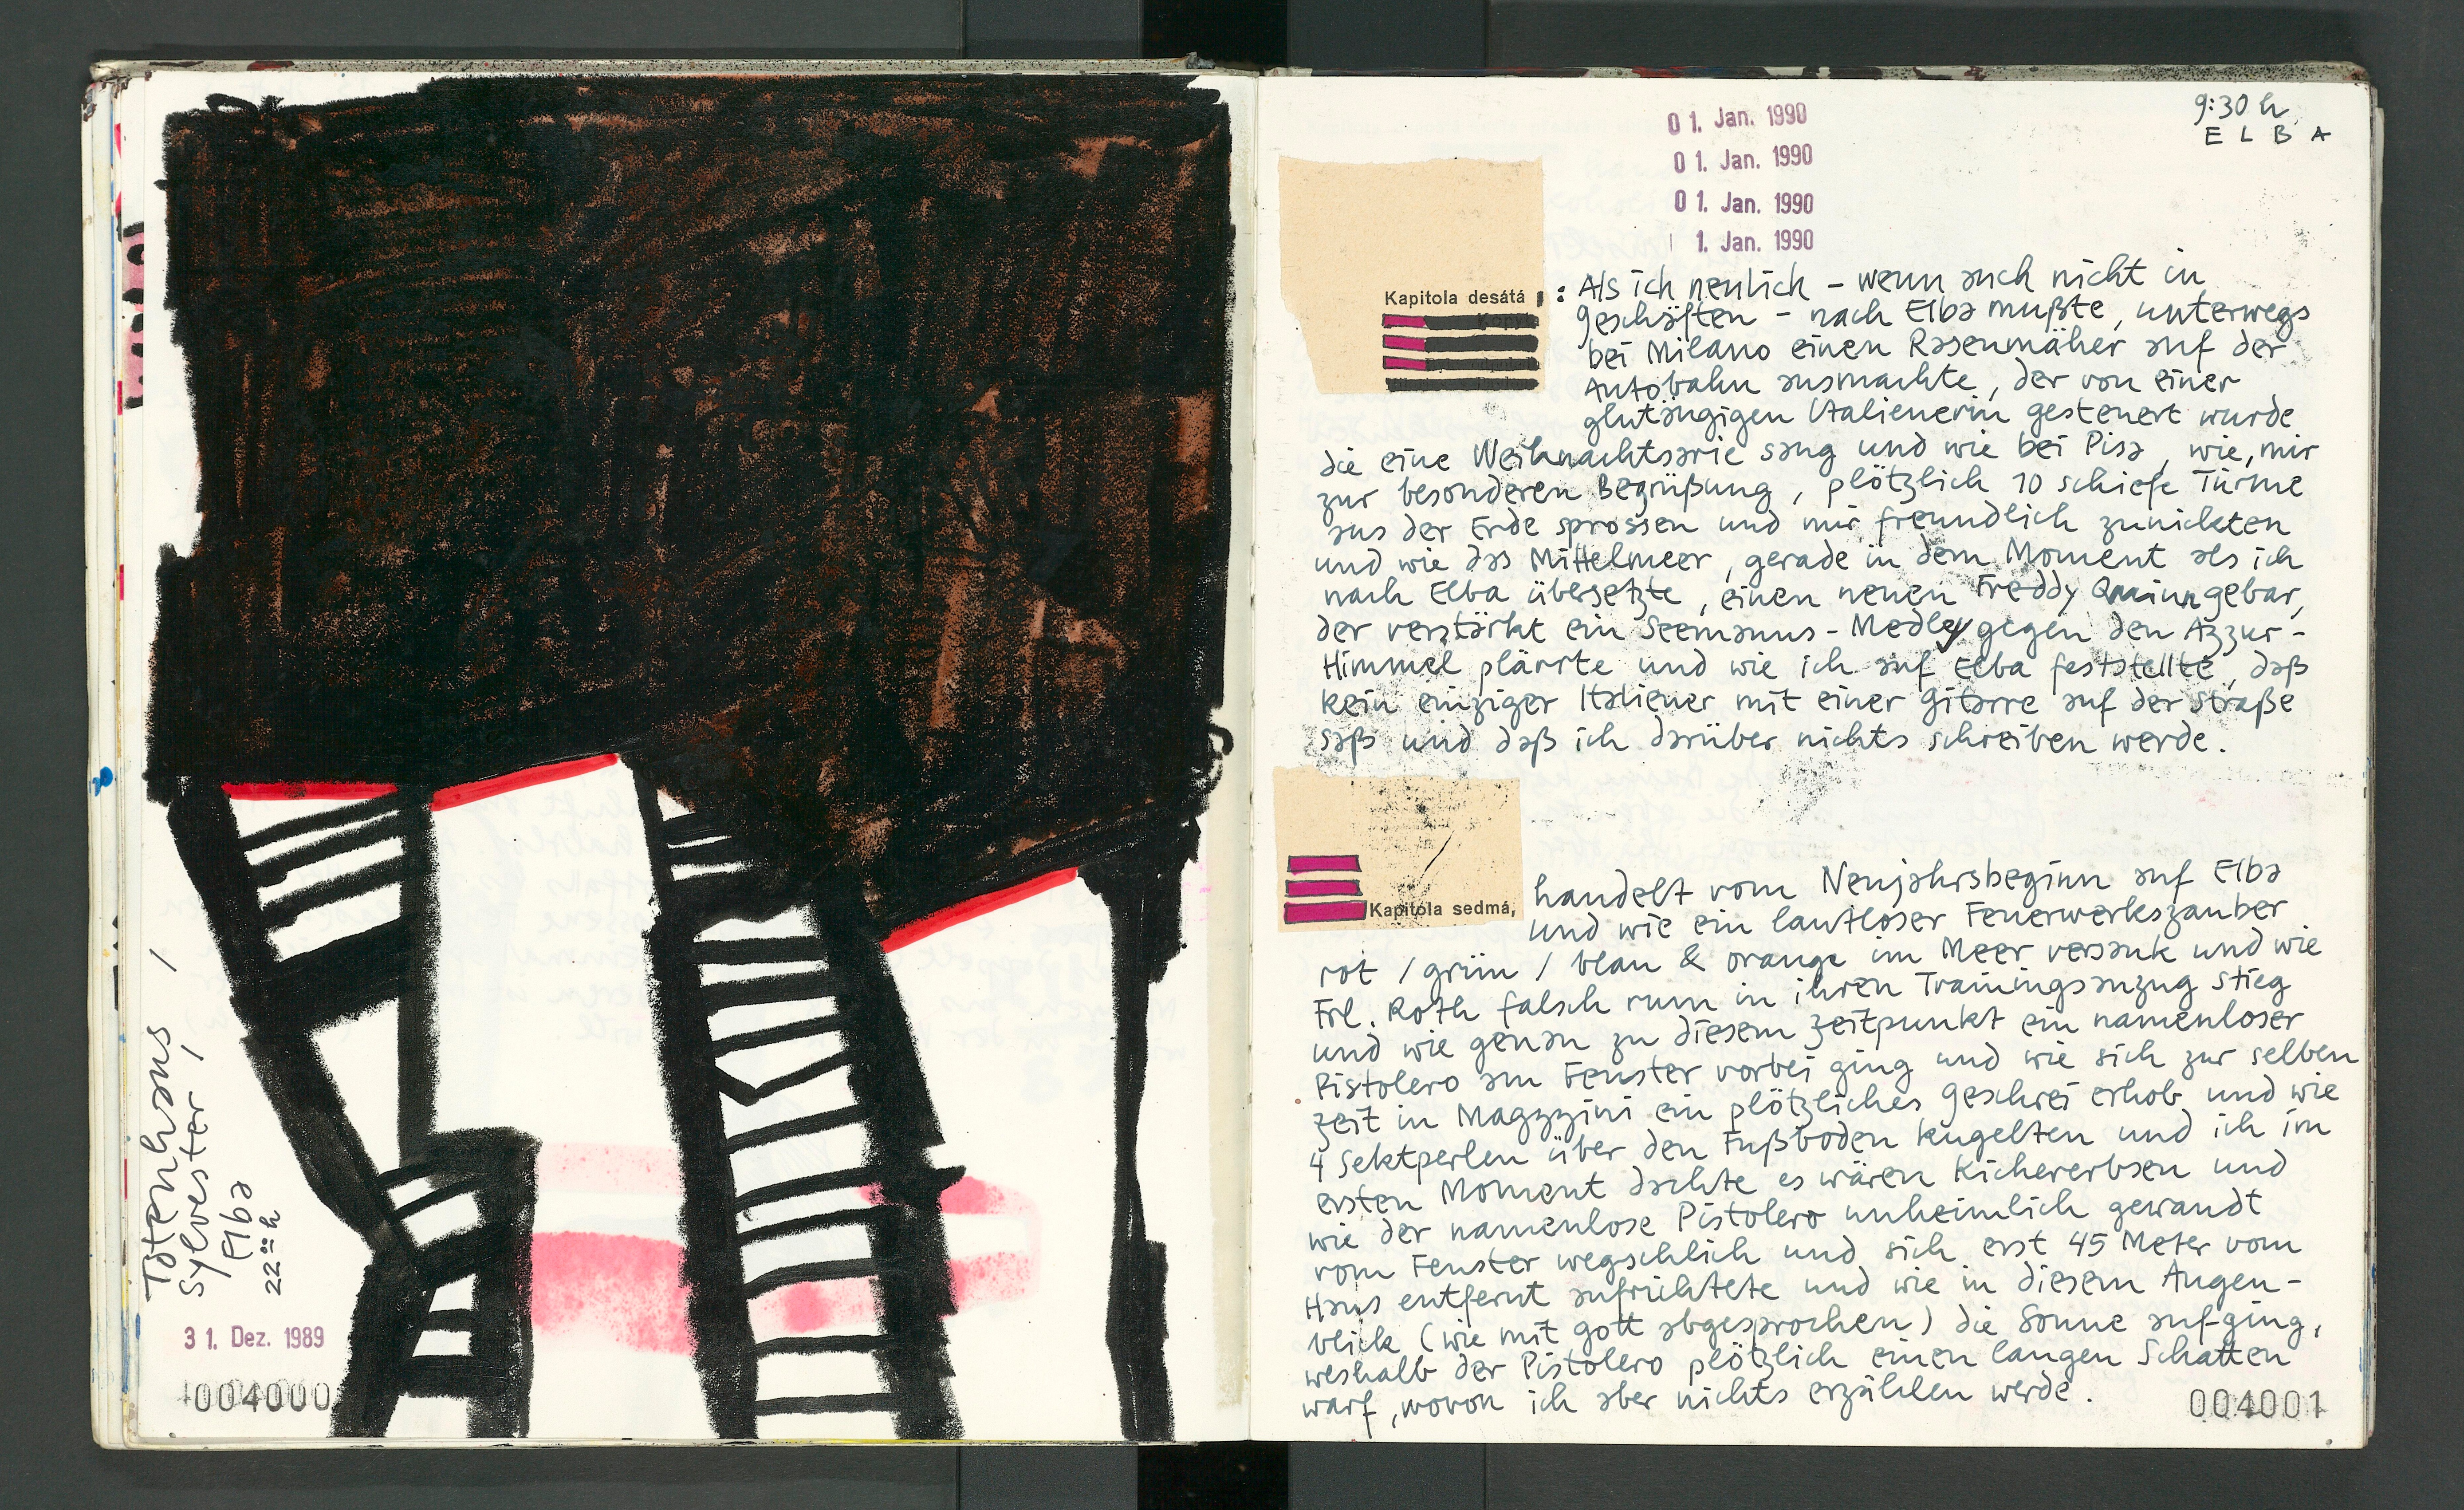 Totenhaus /
Sylvester /
Elba
22ºº h
31. Dez. 1989
004000
01. Jan. 1990
01. Jan. 1990
01. Jan. 1990
1. Jan. 1990
9:30 h
ELBA
Kapitola desátá
: Als ich neulich – wenn auch nicht in
Geschäften – nach Elba mußte, unterwegs
bei Milano einen Rasenmäher auf der
Autobahn ausmachte, der von einer
glutäugigen Italienerin gesteuert wurde
die eine Weihnachtsarie sang und wie bei Pisa, wie, mir
zur besonderen Begrüßung, plötzlich 10 schiefe Türme
aus der Erde sprossen und mir freundlich zunickten
und wie das Mittelmeer, gerade in dem Moment als ich
nach Elba übersetzte, einen neuen Freddy Quinn gebar,
der verstärkt ein Seemanns-Medley gegen den Azzur-
Himmel plärrte und wie ich auf Elba feststellte, daß
kein einziger Italiener mit einer Gitarre auf der Straße
saß und daß ich darüber nichts schreiben werde.
Kapitola sedmá,
handelt vom Neujahrsbeginn auf Elba
und wie ein lautloser Feuerwerkszauber
rot / grün / blau & orange im Meer versank und wie
Frl. Roth falsch rum in ihren Trainingsanzug stieg
und wie genau zu diesem Zeitpunkt ein namenloser
Pistolero am Fenster vorbei ging und wie sich zur selben
Zeit in Magazzini ein plötzliches Geschrei erhob und wie
4 Sektperlen über den Fußboden kugelten und ich im
ersten Moment dachte es wären Kichererbsen und
wie der namenlose Pistolero unheimlich gewandt
vom Fenster wegschlich und sich erst 45 Meter vom
Haus entfernt aufrichtete und wie in diesem Augen-
blick (wie mit Gott abgesprochen) die Sonne aufging,
weshalb der Pistolero plötzlich einen langen Schatten
warf, wovon ich aber nichts erzählen werde.
004001